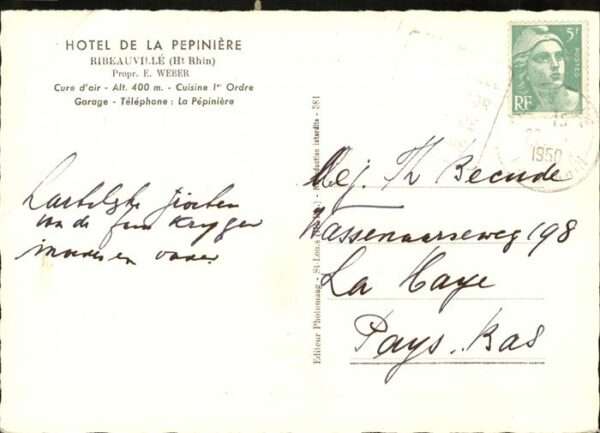 HOTEL DE LA PEPINIÈRE
RIBEAUVILLÉ (Ht Rhin)
Propr. E. WEBER
Cure d'air - Alt. 400 m. - Cuisine 1er Ordre
Garage - Téléphone : La Pépinière
Hartelijke groeten
van de fam Kryger
moeder en vader
Mej. Th Becude
Wassenaarseweg 198
La Haye
Pays-Bas
5F
POSTES
RF
1950
Editeur Photomag - St-Louis
interdite - 381